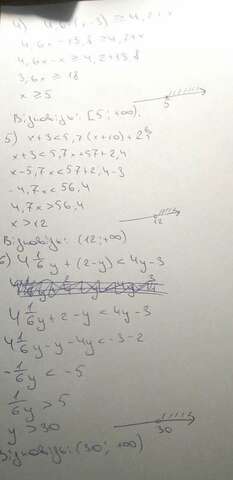 4) 4,6(x-3) ≥ 4,2+x
4,6x-13,8 ≥ 4,2+x
4,6x-x ≥ 4,2+13,8
3,6x ≥ 18
x ≥ 5
5
Відповідь: [5; +∞).
5) x+3<5,7(x+10)+2,4
x+3<5,7x+57+2,4
x-5,7x<57+2,4-3
-4,7x<56,4
4,7x>56,4
x>12
12
Відповідь: (12;+∞)
6) 4 1/6 y + (2-y) < 4y-3
4 1/6 y+2-y < 4y-3
4 1/6 y-y-4y < -3-2
-1/6 y < -5
1/6 y > 5
y > 30
30
Відповідь: (30; +∞)